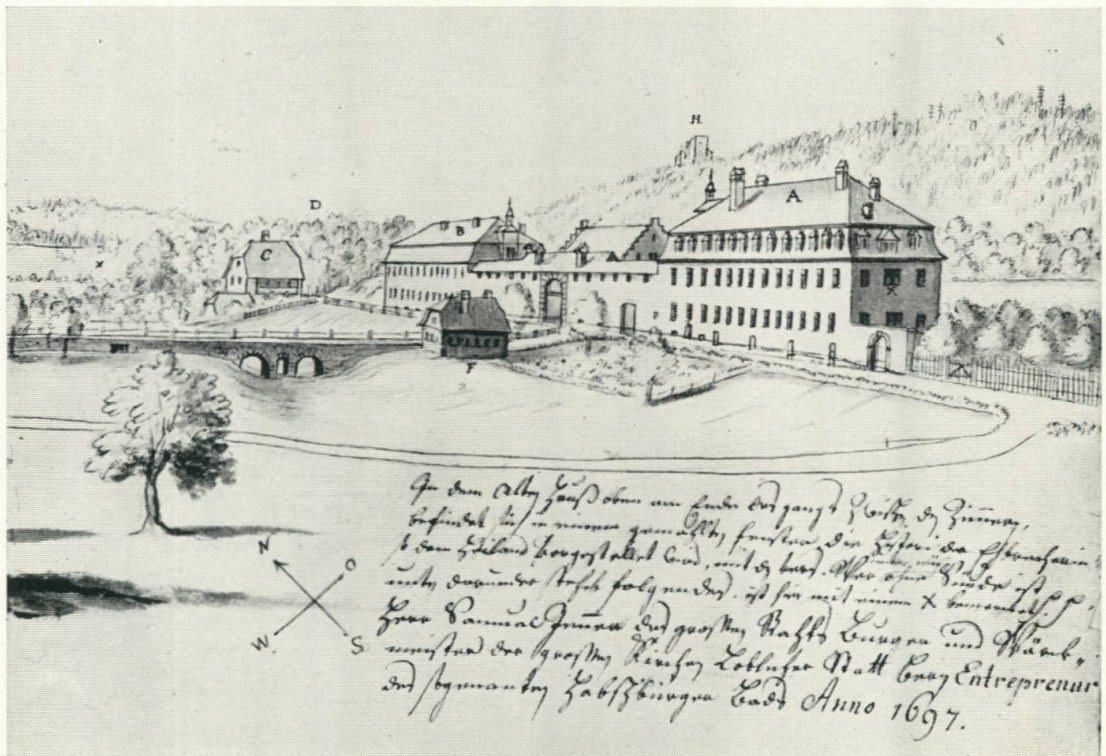 H
D
A
B
C
F
N
O
W.
S
In dem alten Hauß oben am Ende des gangs Zwüschen den Zimmern,
befindet sich in einem gemahlten fenster die Histori der Ehebrecherin
so dem Heiland vorgestellet wird, mit der Wer ohne Sünde ist
unden darunder stehet folgendes, ist hier mit einem X bemerket.
Herr Samuel Jenner des grossen Rahts Burger und Wärck-
meister der grossen Kirchen Loblicher Statt Bern Entreprenur
des sogenanten Habsburger Bads Anno 1697.